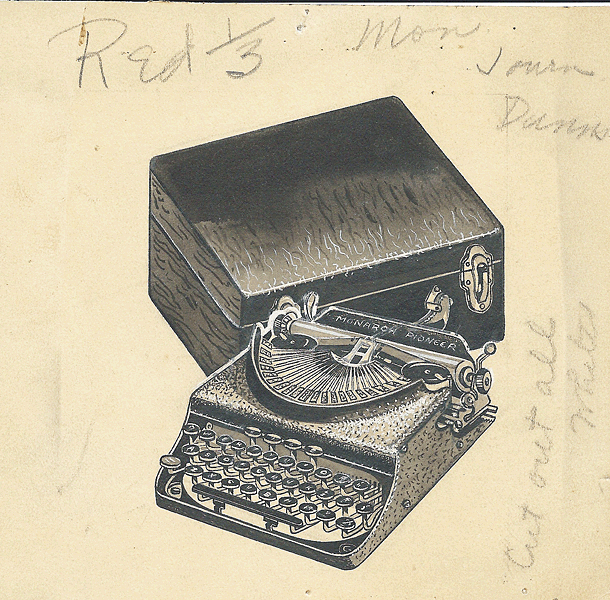 Red 1/3
Mon
Journ
MONARCH PIONEER
Cut out all
Whites